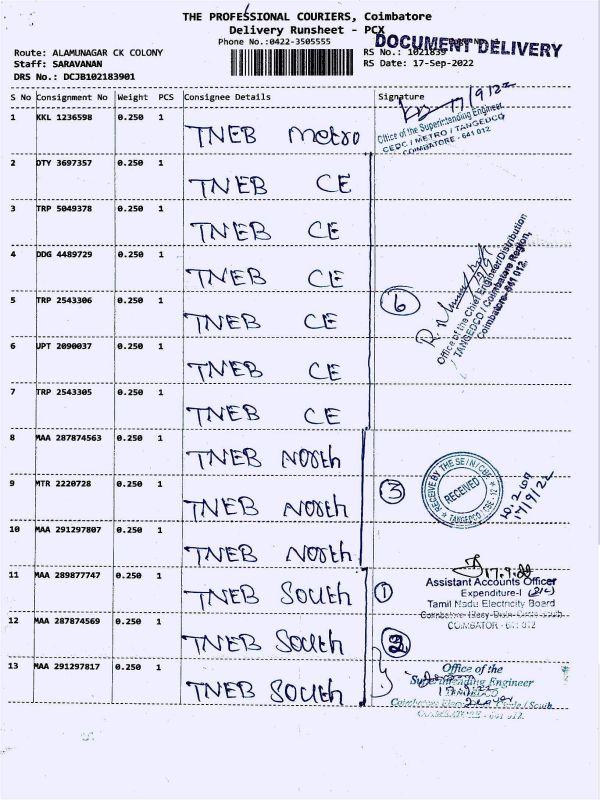 THE PROFESSIONAL COURIERS, Coimbatore
Delivery Runsheet - PCX
Phone No.:0422-3505555
DOCUMENT DELIVERY
Route: ALAMUNAGAR CK COLONY
RS No.: 1021839
Staff: SARAVANAN
RS Date: 17-Sep-2022
DRS No.: DCJB102183901
S No Consignment No Weight PCS Consignee Details Signature
1 KKL 1236598 0.250 1 TNEB Metro
17/9/22
Office of the Superintending Engineer
CEDC / METRO / TANGEDCO
COIMBATORE - 641 012
2 DTY 3697357 0.250 1 TNEB CE
3 TRP 5049378 0.250 1 TNEB CE
4 DDG 4489729 0.250 1 TNEB CE
5 TRP 2543306 0.250 1 TNEB CE
6 UPT 2090037 0.250 1 TNEB CE
7 TRP 2543305 0.250 1 TNEB CE
6
Office of the Chief Engineer/Distribution
TANGEDCO / Coimbatore Region,
Coimbatore-641 012.
8 MAA 287874563 0.250 1 TNEB North
9 MTR 2220728 0.250 1 TNEB North
10 MAA 291297807 0.250 1 TNEB North
3
RECEIVE BY THE SE/N/CBE
RECEIVED
TANGEDCO, CBE - 12
17/9/22
11 MAA 289877747 0.250 1 TNEB South
1
17.9.22
Assistant Accounts Officer
Expenditure-I
Tamil Nadu Electricity Board
COIMBATOR - 641 012
12 MAA 287874569 0.250 1 TNEB South
13 MAA 291297817 0.250 1 TNEB South
Office of the
Superintending Engineer
TANGEDCO